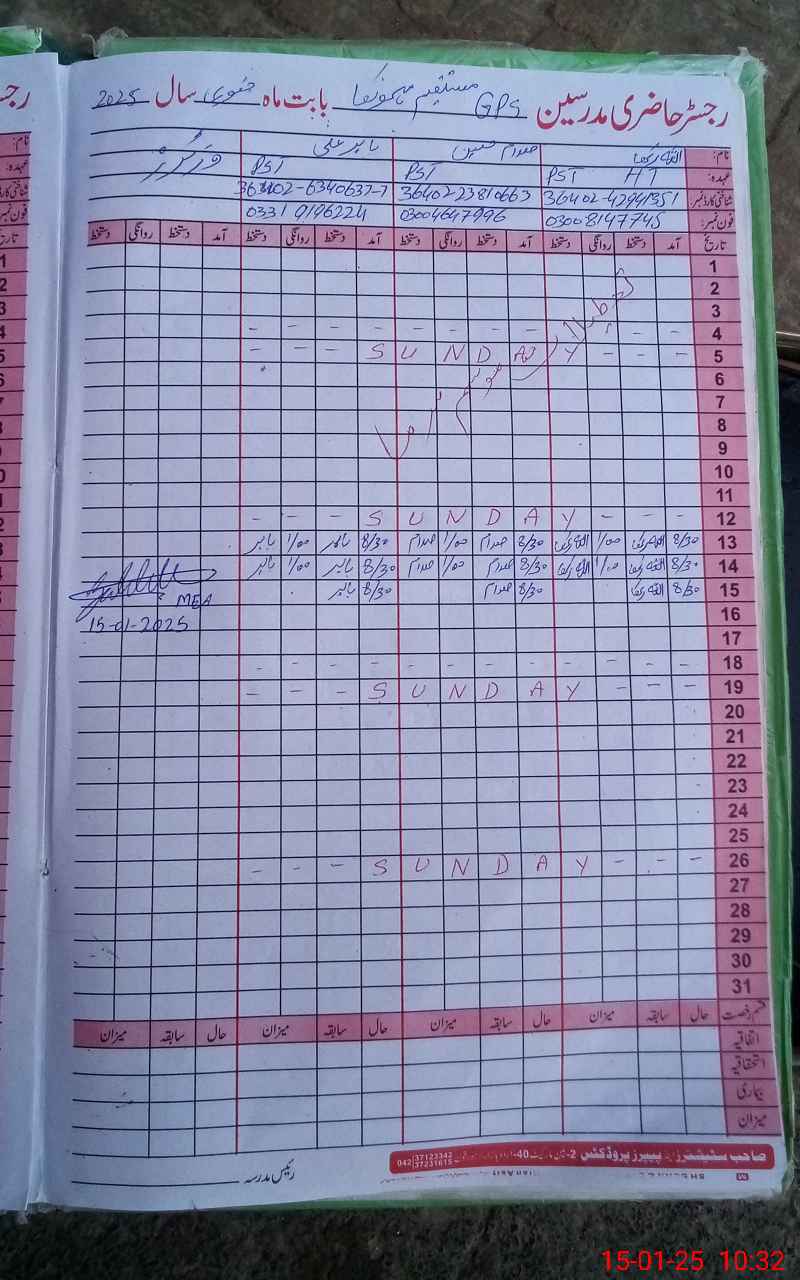 رجسٹر حاضری مدرسین GPS مستقیم بابت ماہ جنوری سال 2025
نام: اللہ رکھا صدام حسین بابر علی
عہدہ: HT PST PST PST
شناختی کارڈ نمبر 36402-42941351 36402-23810663 36402-6340637-7
فون نمبر: 03008147745 03004647996 0331 9196224
تاریخ آمد دستخط روانگی دستخط آمد دستخط روانگی دستخط آمد دستخط روانگی دستخط آمد دستخط روانگی دستخط
1
2
3
4 - - - - - - - - - - - -
5 - - - S U N D A Y - - -
تعطیلات موسم سرما
6
7
8
9
10
11
12 - - - S U N D A Y - - -
13 8/30 اللہ رکھا 1/00 اللہ رکھا 8/30 صدام 1/00 صدام 8/30 بابر 1/00 بابر
14 8/30 اللہ رکھا 1/00 اللہ رکھا 8/30 صدام 1/00 صدام 8/30 بابر 1/00 بابر
15 8/30 اللہ رکھا 8/30 صدام 8/30 بابر
MEA
15-01-2025
16
17
18 - - - - - - - - - - - -
19 - - - S U N D A Y - - -
20
21
22
23
24
25
26 - - - S U N D A Y - - -
27
28
29
30
31
قسم رخصت حال سابقہ میزان حال سابقہ میزان حال سابقہ میزان حال سابقہ میزان
اتفاقیہ
استحقاقیہ
بیماری
میزان
صاحب سٹیشنرز اینڈ پیپرز پروڈکٹس 2- 40- 042 37123342 37231615
رئیس مدرسہ
15-01-25 10:32